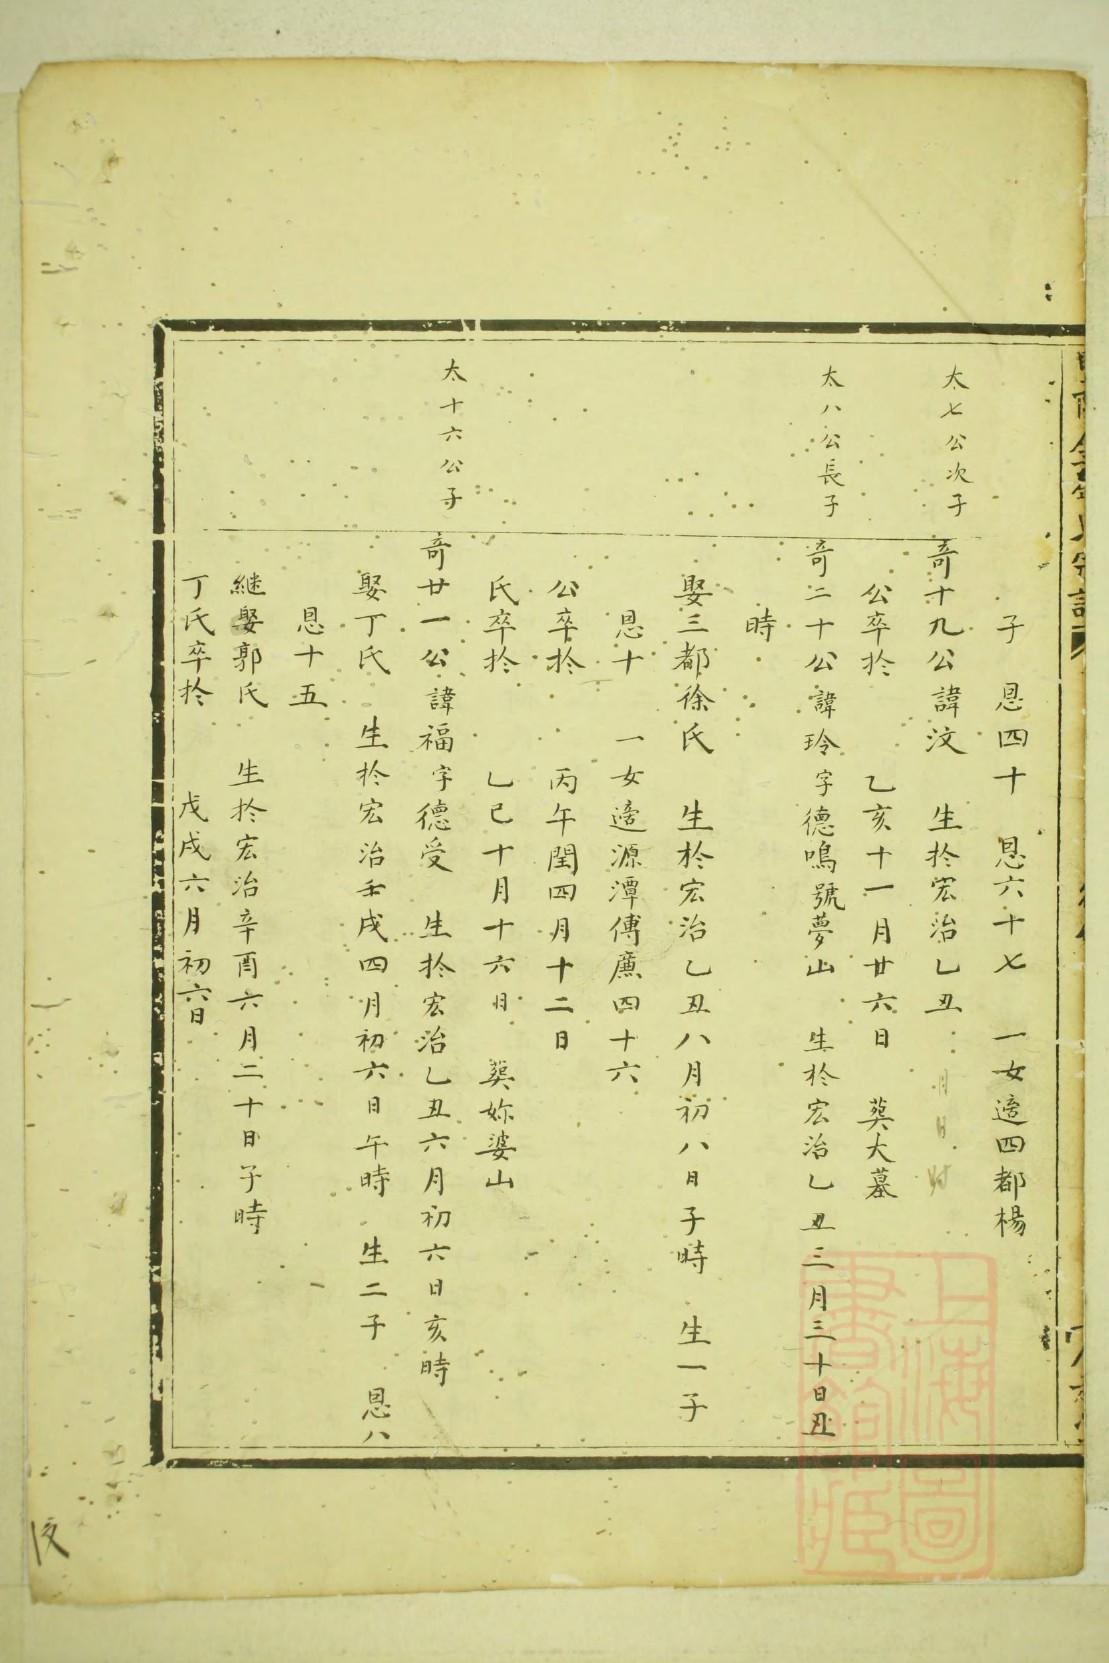 子 恩四十 恩六十七 一女適四都楊
太七公次子
奇十九公諱汶 生扵宏治乙丑 月 日 时
公卒扵 乙亥十一月廿六日 葬大墓
太八公長子
奇二十公諱玲字德鳴號夢山 生扵宏治乙丑三月三十日丑
時
娶三都徐氏 生扵宏治乙丑八月初八日子時 生一子
恩十 一女適源潭傅廪四十六
公卒扵 丙午閏四月十二日
氏卒扵 乙巳十月十六日 葬妳婆山
太十六公子
奇廿一公諱福字德受 生扵宏治乙丑六月初六日亥時
娶丁氏 生扵宏治壬戌四月初六日午時 生二子 恩八
恩十五
継娶郭氏 生扵宏治辛酉六月二十日子時
丁氏卒扵 戊戌六月初六日
上海圖書館藏